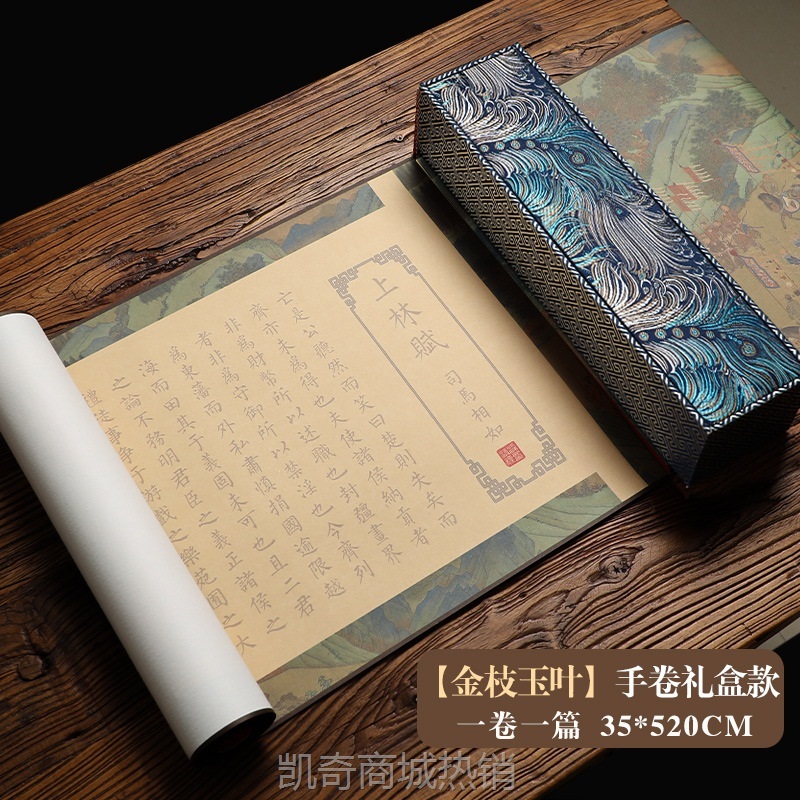 上林賦
司馬相如
亡是公聽然而笑曰楚則失矣而
齊亦未爲得也夫使諸侯納貢者
非爲財幣所以述職也封疆畫界
者非爲守御所以禁淫也今齊列
爲東藩而外私肅慎捐國逾限越
海而田其于義固未可也且二君
之論不務明君臣之義正諸侯之
禮徒事爭于游戲之樂苑囿之大
【金枝玉叶】手卷礼盒款
一卷一篇 35*520CM
凯奇商城热销